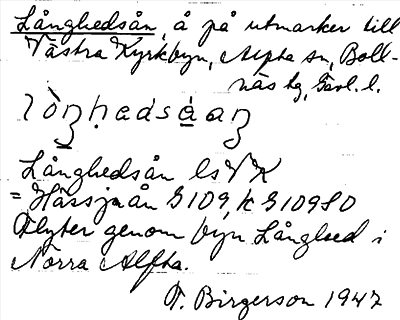 Långhedsån, å på utmarker till
Västra Kyrkbyn, Alfta sn, Boll-
näs tg, Gävl. l.
Långhedsån ls V K
= Hässjaån G109, k G109SO
Flyter genom byn Långhed i
Norra Alfta.
F. Birgerson 1947